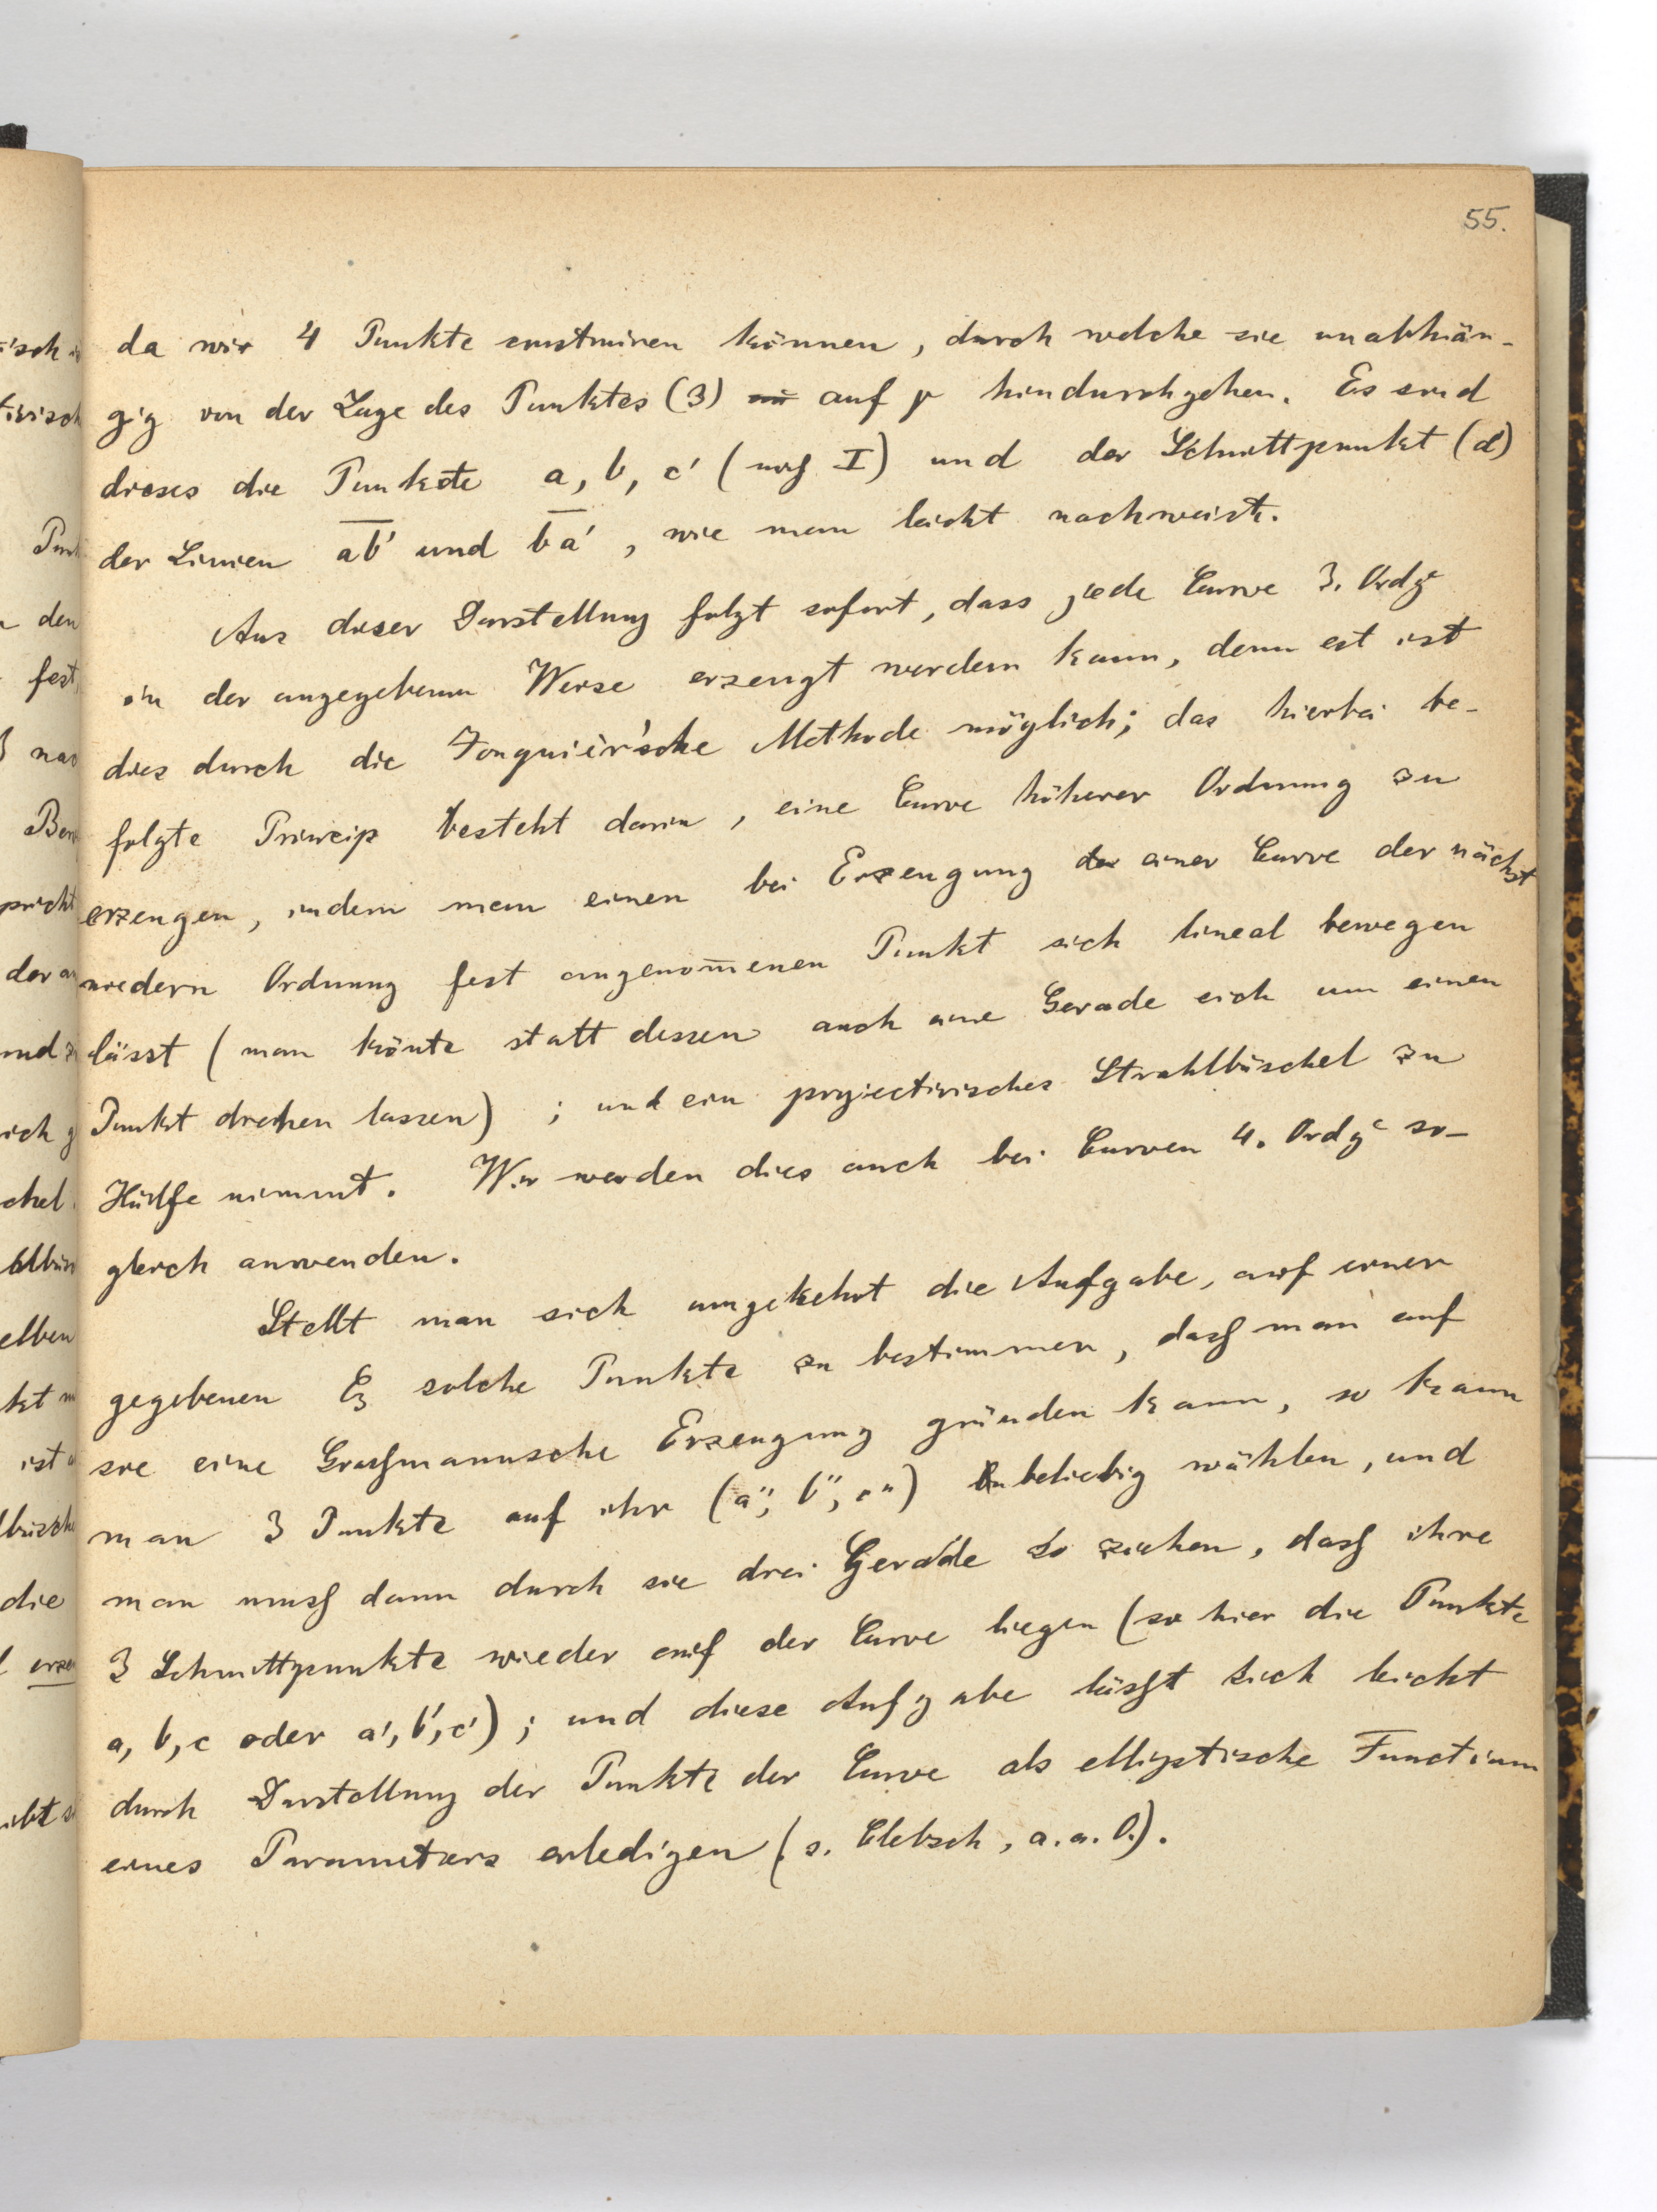 55.
da wir 4 Punkte construiren können, durch welche sie unabhän-
gig von der Lage des Punktes (3) auf p hindurchgehen. Es sind
dieses die Punkte a, b, c' (auf I) und der Schnittpunkt (d)
der Linien ab' und ba', wie man leicht nachweist.
Aus dieser Darstellung folgt sofort, dass jede Curve 3. Ordg
in der angegebenen Weise erzeugt werden kann, denn es ist
dies durch die Jonquièr'sche Methode möglich; das hierbei be-
folgte Princip besteht darin, eine Curve höherer Ordnung zu
erzeugen, indem man einen bei Erzeugung einer Curve der nächst
niedern Ordnung fest angenom̅enen Punkt sich lineal bewegen
lässt (man kön̅te statt dessen auch eine Gerade sich um einen
Punkt drehen lassen); und ein projectivisches Strahlbüschel zu
Hülfe nimmt. Wir werden dies auch bei Curven 4. Ordg so-
gleich anwenden.
Stellt man sich umgekehrt die Aufgabe, auf einer
gegebenen C3 solche Punkte zu bestimmen, daß man auf
sie eine Graßmannsche Erzeugung gründen kann, so kann
man 3 Punkte auf ihr (a'', b'', c'') beliebig wählen, und
man muß dann durch sie drei Gerade so ziehen, daß ihre
3 Schnittpunkte wieder auf der Curve liegen (so hier die Punkte
a, b, c oder a', b', c'); und diese Aufgabe läßt sich leicht
durch Darstellung der Punkte der Curve als elliptische Functionen
eines Parameters erledigen (s. Clebsch, a. a. O.).